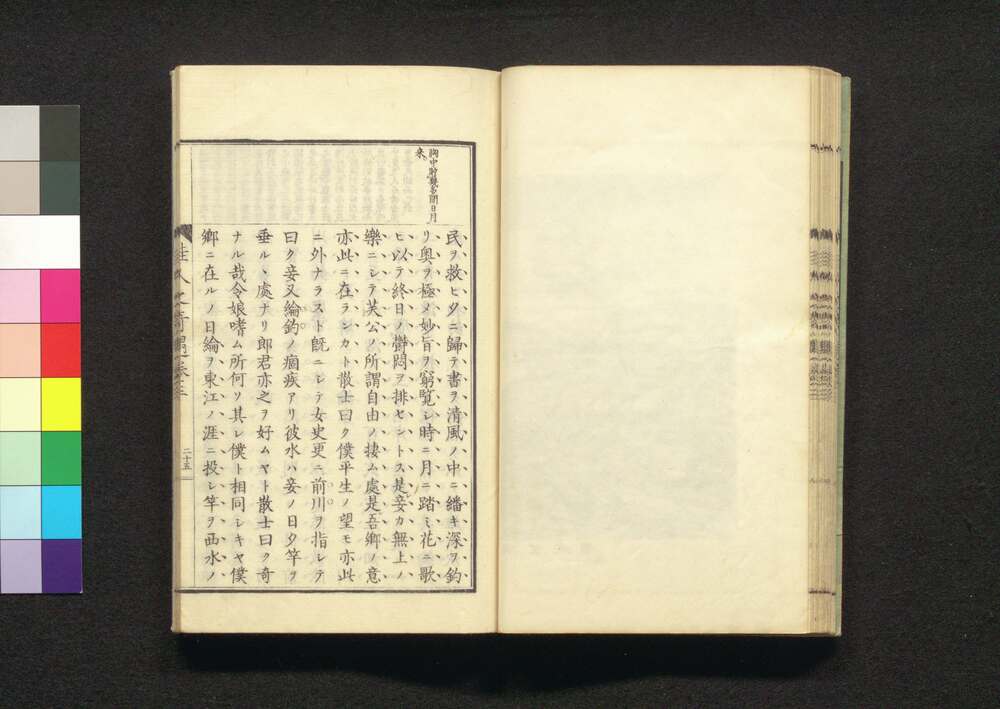 民ヲ救ヒ夕ニ歸テ書ヲ清風ノ中ニ繙キ深ヲ釣
リ奥ヲ極メ妙旨ヲ窮覧シ時ニ月ニ踏ミ花ニ歌
ヒ以テ終日ノ欝悶ヲ排セントス是妾カ無上ノ
樂ニシテ芙公ノ所謂自由ノ捿ム處是吾郷ノ意
亦此ニ在ランカト散士曰ク僕平生ノ望モ亦此
ニ外ナラスト既ニシテ女史更ニ前川ヲ指シテ
曰ク妾又綸釣ノ痼疾アリ彼水ハ妾ノ日夕竿ヲ
垂ルヽ處ナリ郎君亦之ヲ好ムヤト散士曰ク奇
ナル哉令娘嗜ム所何ソ其レ僕ト相同シキヤ僕
郷ニ在ルノ日綸ヲ東江ノ涯ニ投シ竿ヲ西水ノ
佳人之奇遇
二十五